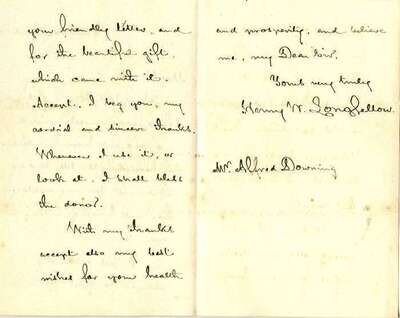 your friendly letter, and
for the beautiful gift
which came with it.
Accept, I beg you, my
cordial and sincere thanks.
Whenever I use it, or
look at, I shall bless
the donor.
With my thanks
accept also my best
wishes for your health
and prosperity, and believe
me, my Dear Sir,
Yours very truly
Henry W. Longfellow.
Mr. Alfred Downing